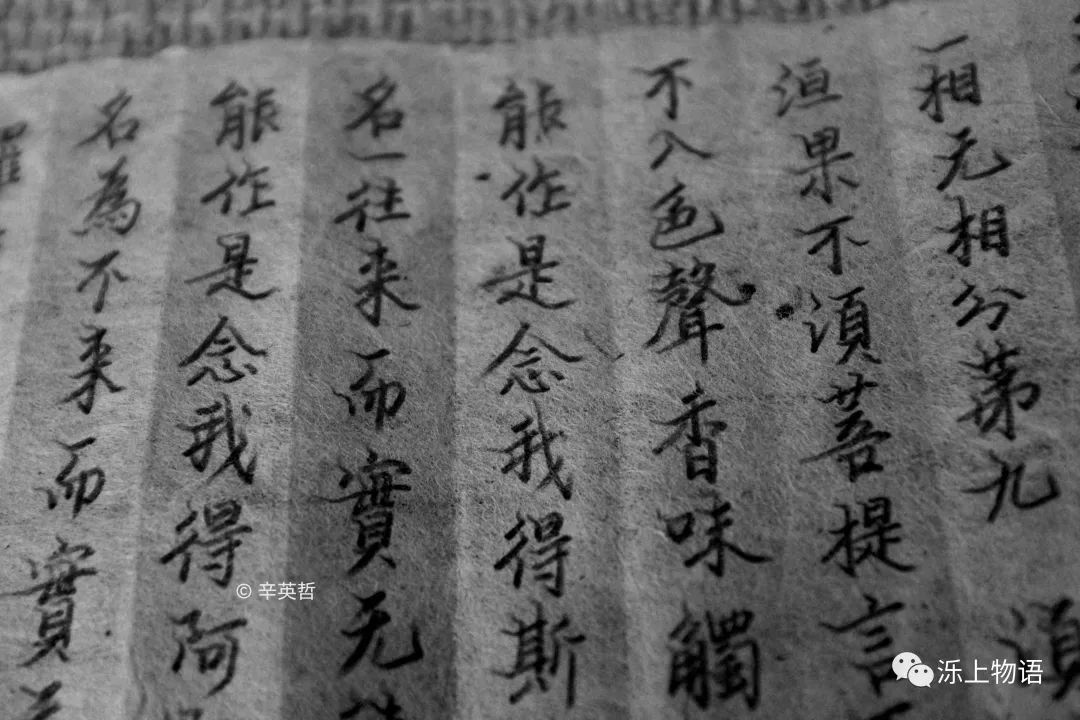 一相无相分苐九
湏
洹果不湏菩提言
不入色聲香味觸
能作是念我得斯
名一往来而實无
能作是念我得阿
名為不来而實
© 辛英哲
泺上物语